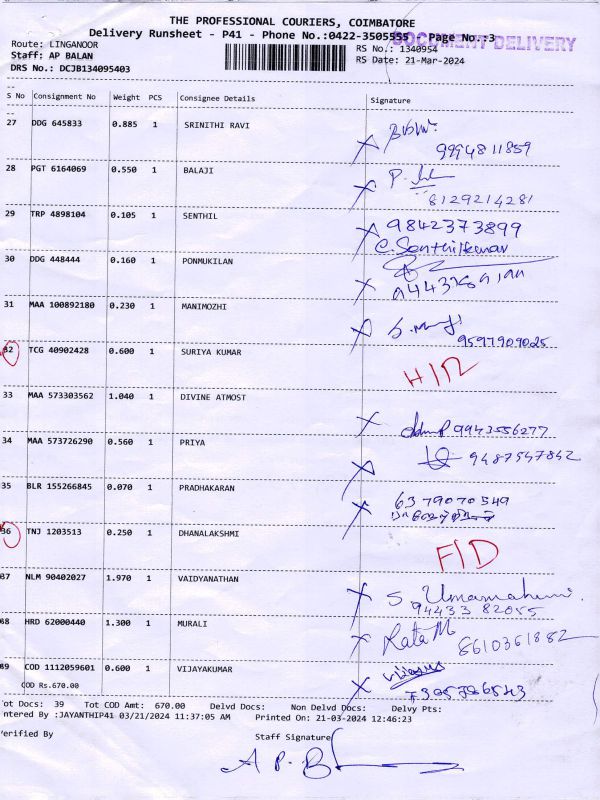 THE PROFESSIONAL COURIERS, COIMBATORE
Delivery Runsheet - P41 - Phone No.:0422-3505555 Page No.:3
DOCUMENT DELIVERY
Route: LINGANOOR RS No.: 1340954
Staff: AP BALAN RS Date: 21-Mar-2024
DRS No.: DCJB134095403
S No Consignment No Weight PCS Consignee Details Signature
27 DDG 645833 0.885 1 SRINITHI RAVI
9994811859
28 PGT 6164069 0.550 1 BALAJI
8129214281
29 TRP 4898104 0.105 1 SENTHIL 9842373899
C. Senthilkumar
30 DDG 448444 0.160 1 PONMUKILAN
31 MAA 100892180 0.230 1 MANIMOZHI
9597909025
32 TCG 40902428 0.600 1 SURIYA KUMAR
33 MAA 573303562 1.040 1 DIVINE ATMOST
9943556277
34 MAA 573726290 0.560 1 PRIYA
9487547842
35 BLR 155266845 0.070 1 PRADHAKARAN
6379070549
36 TNJ 1203513 0.250 1 DHANALAKSHMI
F/D
37 NLM 90402027 1.970 1 VAIDYANATHAN
S. Umamaheswari
94433 82055
38 HRD 62000440 1.300 1 MURALI
8610361882
39 COD 1112059601 0.600 1 VIJAYAKUMAR
COD Rs.670.00
Tot Docs: 39 Tot COD Amt: 670.00 Delvd Docs: Non Delvd Docs: Delvy Pts:
Entered By :JAYANTHIP41 03/21/2024 11:37:05 AM Printed On: 21-03-2024 12:46:23
Verified By Staff Signature
A P. B